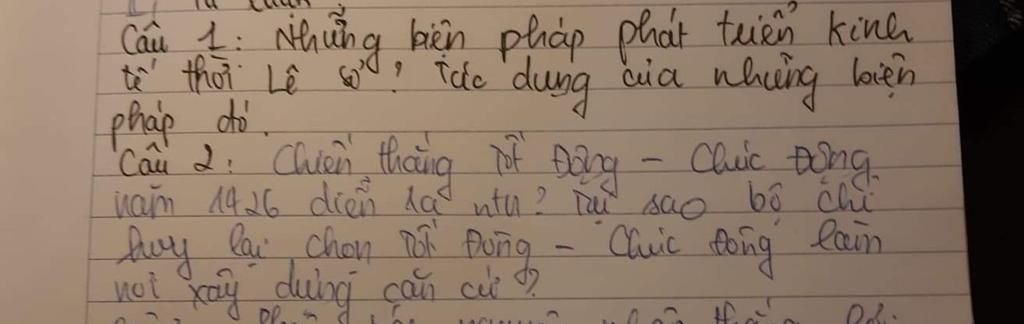 Câu 1: Những biện pháp phát triển kinh
tế thời Lê sơ? Tác dụng của những biện
pháp đó.
Câu 2: Chiến thắng Tốt Động - Chúc Động
năm 1426 diễn ra ntn? Tại sao bộ chỉ
huy lại chọn Tốt Động - Chúc Động làm
nơi xây dựng căn cứ?